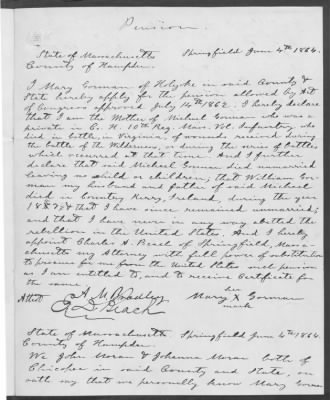 Pension.
State of Massachusetts Springfield June 4th 1864.
County of Hampden.
I Mary Gorman of Holyoke in said County &
State hereby apply for the pension allowed by Act
of Congress approved July 14th 1862. I hereby declare
that I am the Mother of Michael Gorman who was a
private in Co. H 10th Reg. Mass. Vol. Infantry, who
died in battle in Virginia of wounds received during
the battle of the Wilderness, or during the series of battles
which occurred at that time. And I further
declare that said Michael Gorman died unmarried
leaving no child or children; that William Gor-
man my husband and father of said Michael
died in Country Kerry, Ireland, during the year
that I have since remained unmarried;
and that I have never in any way abetted the
rebellion in the United States. And I hereby
appoint Charles A. Beach of Springfield, Massa-
chusetts my Attorney with full power of substitution
to procure for me from the United States such pension
as I am entitled to, and to receive Certificate for
the same.
Attest her
A. M. Bradley Mary X Gorman
Beach mark
State of Massachusetts Springfield June 4th, 1864.
County of Hampden.
We John Moran & Johanna Moran both of
Chicopee in said County and State, on
oath say that we personally know Mary Gorman